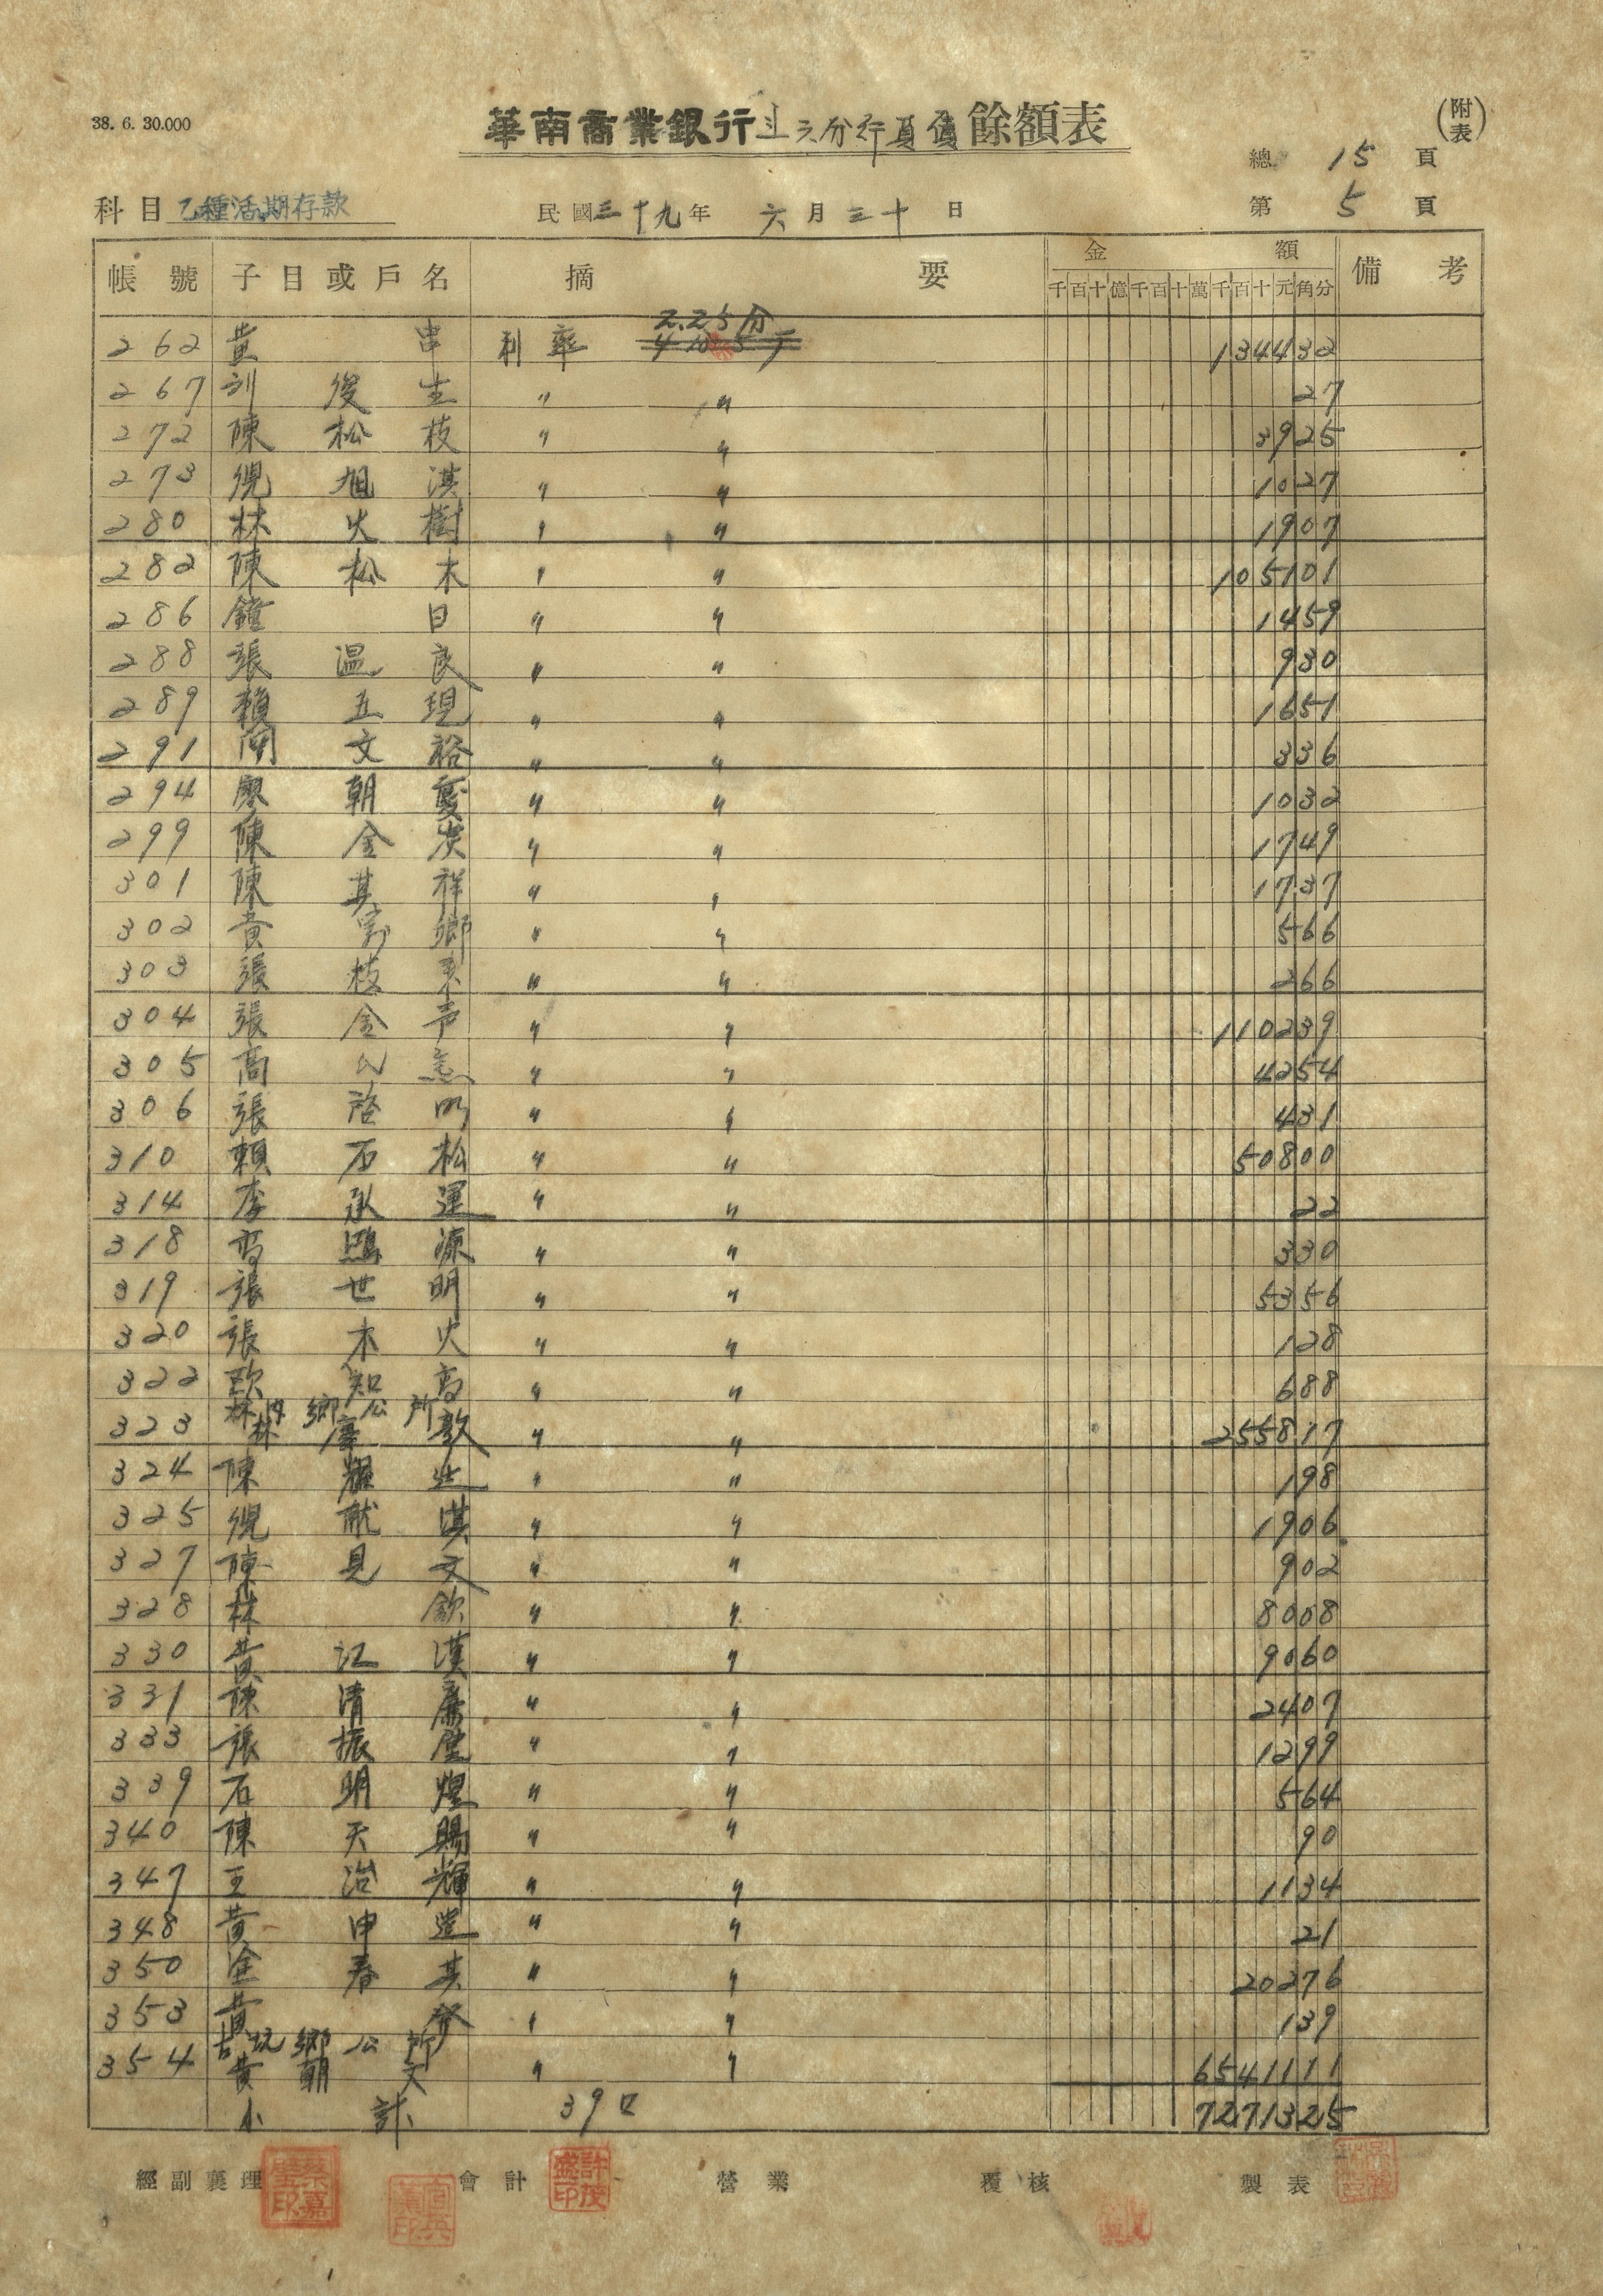 38. 6. 30.000
華南商業銀行斗六分行負債餘額表
(附表)
總 15 頁
科目 乙種活期存款 民國三十九年 六月三十日 第 5 頁
帳號 子目或戶名 摘要 金額 備考
千百十億千百十萬千百十元角分
2.25分
262 黃 串 利率 134432
267 後生 〃 〃 27
272 陳松枝 〃 〃 3925
273 旭淇 〃 〃 1027
280 林火樹 〃 〃 1907
282 陳松木 〃 〃 105101
286 鐘 日 〃 〃 1459
288 張溫良 〃 〃 930
289 賴五現 〃 〃 1651
291 文裕 〃 〃 336
294 廖朝慶 〃 〃 1032
299 陳金炭 〃 〃 1749
301 陳其祥 〃 〃 1737
302 黃 鄉 〃 〃 566
303 張枝 〃 〃 266
304 張金声 〃 〃 110239
305 高 〃 〃 4254
306 張啓明 〃 〃 431
310 賴石松 〃 〃 50800
314 李承運 〃 〃 22
318 源 〃 〃 330
319 張世明 〃 〃 5356
320 張木火 〃 〃 128
322 歐知高 〃 〃 688
林內鄉公所
323 林慶敦 〃 〃 255817
324 陳 〃 〃 198
325 献淇 〃 〃 1906
327 陳見文 〃 〃 902
328 林 欽 〃 〃 8008
330 黃江漢 〃 〃 9060
331 陳清廉 〃 〃 2407
333 張振 〃 〃 1299
339 石明煌 〃 〃 564
340 陳天賜 〃 〃 90
347 王治輝 〃 〃 1134
348 黃申 〃 〃 21
350 春其 〃 〃 20276
353 黃 發 〃 〃 139
古坑鄉公所
354 黃朝文 〃 〃 6541111
小計 39口 7271325
經副襄理 會計 營業 覆核 製表